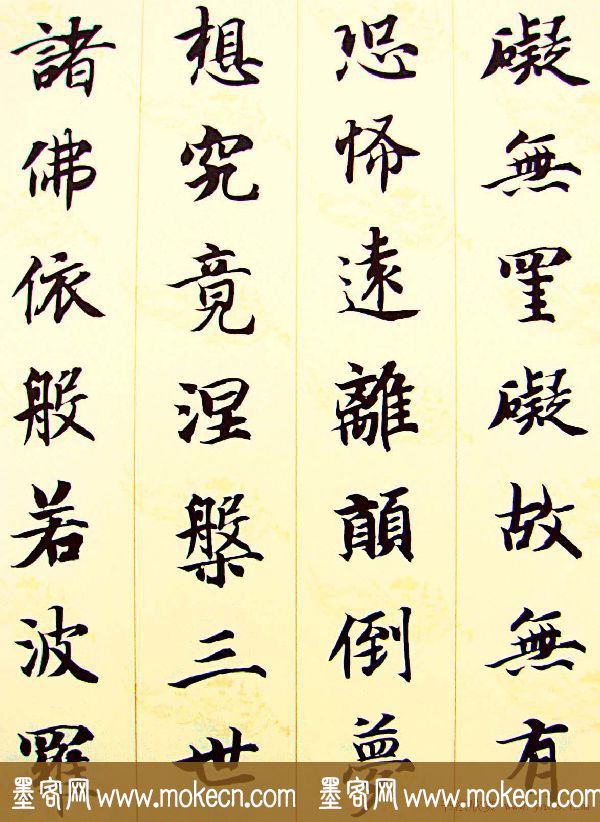 礙無罣礙故無有
恐怖遠離顛倒夢
想究竟涅槃三世
諸佛依般若波羅
墨客网 www.mokecn.com 墨客网 www.mokecn.com